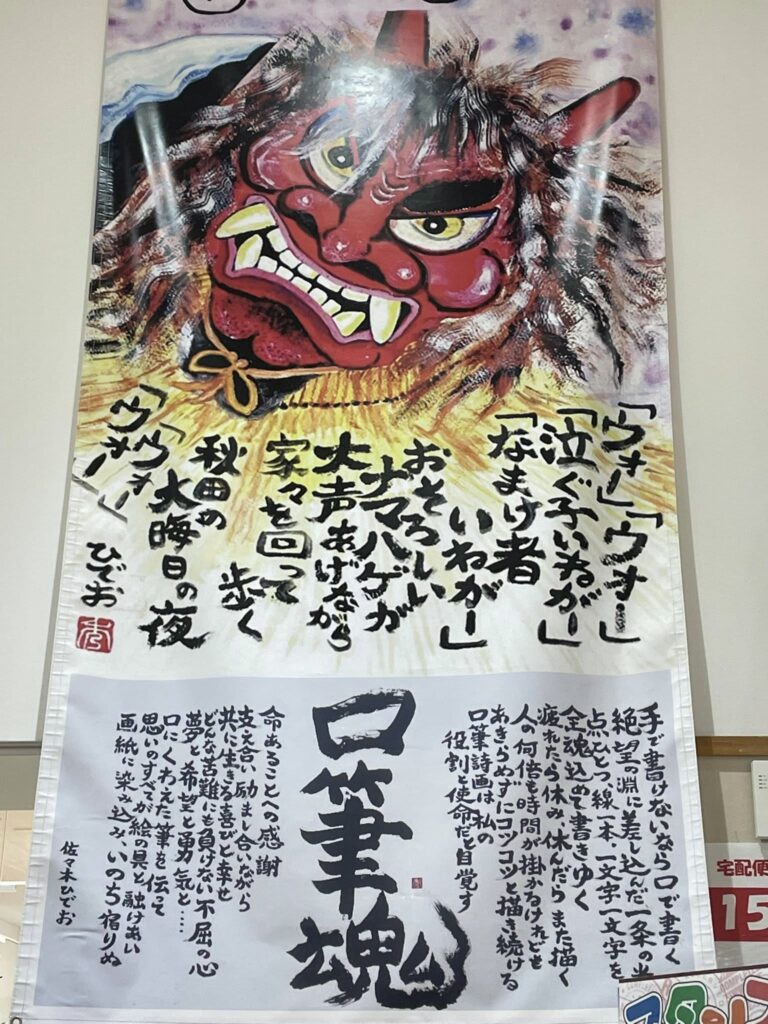 「ウォー」「ウォー」
「泣ぐ子いねがー」
「なまけ者
いねがー」
おそろしい
ナマハゲが
大声あげながら
家々を回って
歩く
秋田の
大晦日の夜
「ウォー
ウォー」
ひでお
手で書けないなら口で書く
絶望の淵に差し込んだ一条の光
点ひとつ、線一本、一文字一文字を
全魂込めて書きゆく
疲れたら休み、休んだら また描く
人の何倍も時間が掛かるけれども
あきらめずにコツコツと描き続ける
口筆詩画は、私の
役割と使命だと自覚す
口筆魂
命あることへの感謝
支え合い励まし合いながら
共に生きる喜びと幸せ
どんな苦難にも負けない不屈の心
夢と希望と勇気と……
口にくわえた筆を伝って
思いのすべてが絵の具と融けあい
画紙に染み込み、いのち宿りぬ
佐々木ひでお
宅配便
15
スタンプ